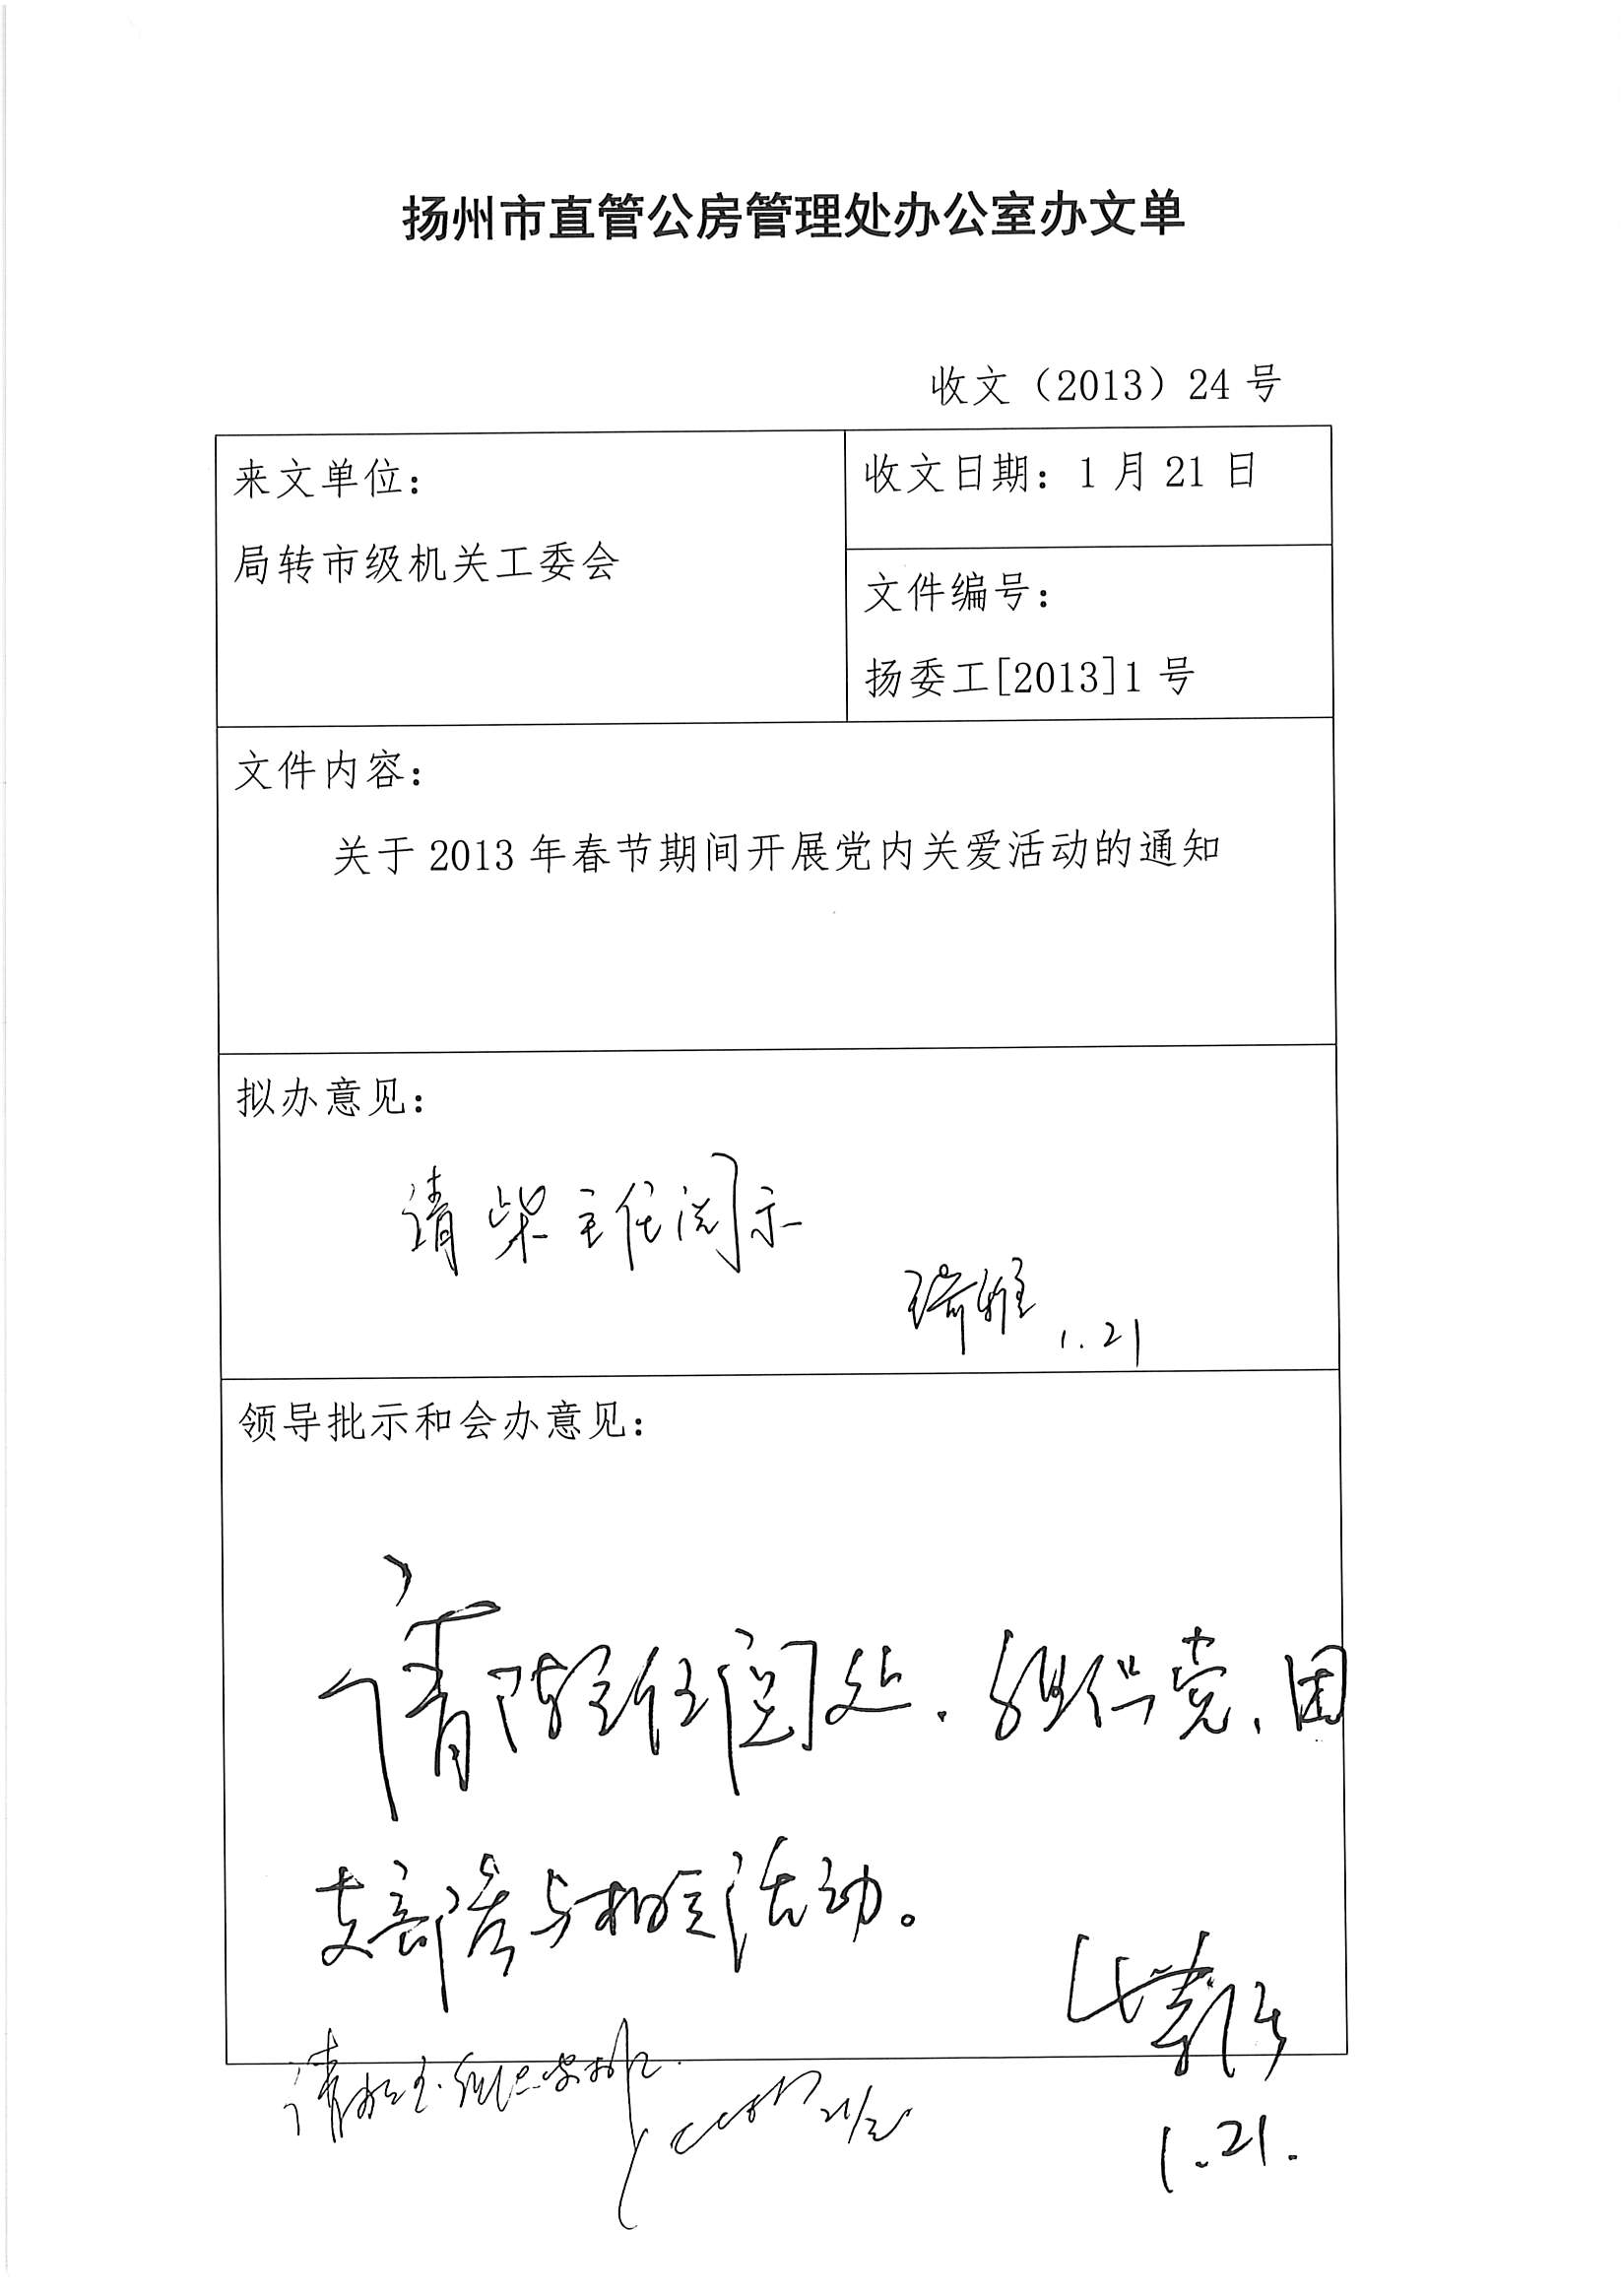 扬州市直管公房管理处办公室办文单
收文（2013）24 号
来文单位：
局转市级机关工委会
收文日期：1 月 21 日
文件编号：
扬委工[2013]1 号
文件内容：
关于 2013 年春节期间开展党内关爱活动的通知
拟办意见：
请柴主任阅示
琦雅 1.21
领导批示和会办意见：
请陈主任阅处，组织党、团
支部参与相应活动。
1.21.